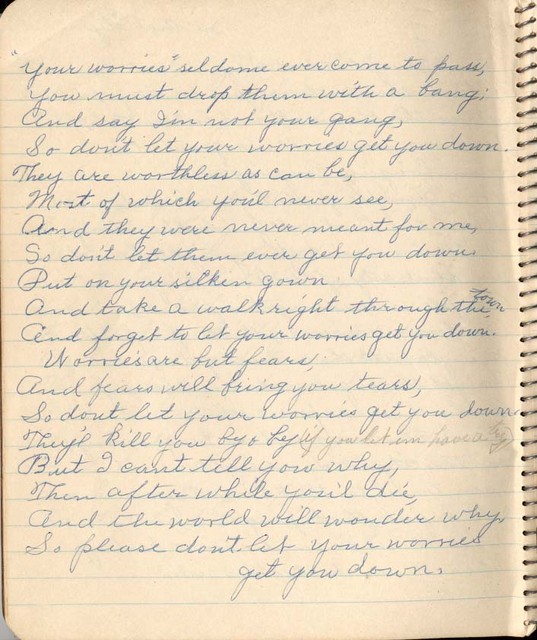 "Your worries" seldome ever come to pass,
You must drop them with a bang;
And say I'm not your gang,
So don't let your worries get you down.
They are worthless as can be,
Most of which you'l never see,
And they were never meant for me,
So don't let them ever get you down.
Put on your silken gown
And take a walk right through the town
And forget to let your worries get you down.
Worries are but fears,
And fears will bring you tears,
So dont let your worries get you down
They'l kill you by o by (if you let im have a try)
But I can't tell you why,
Then after while you'l die,
And the world will wonder why,
So please dont let your worries
get you down.